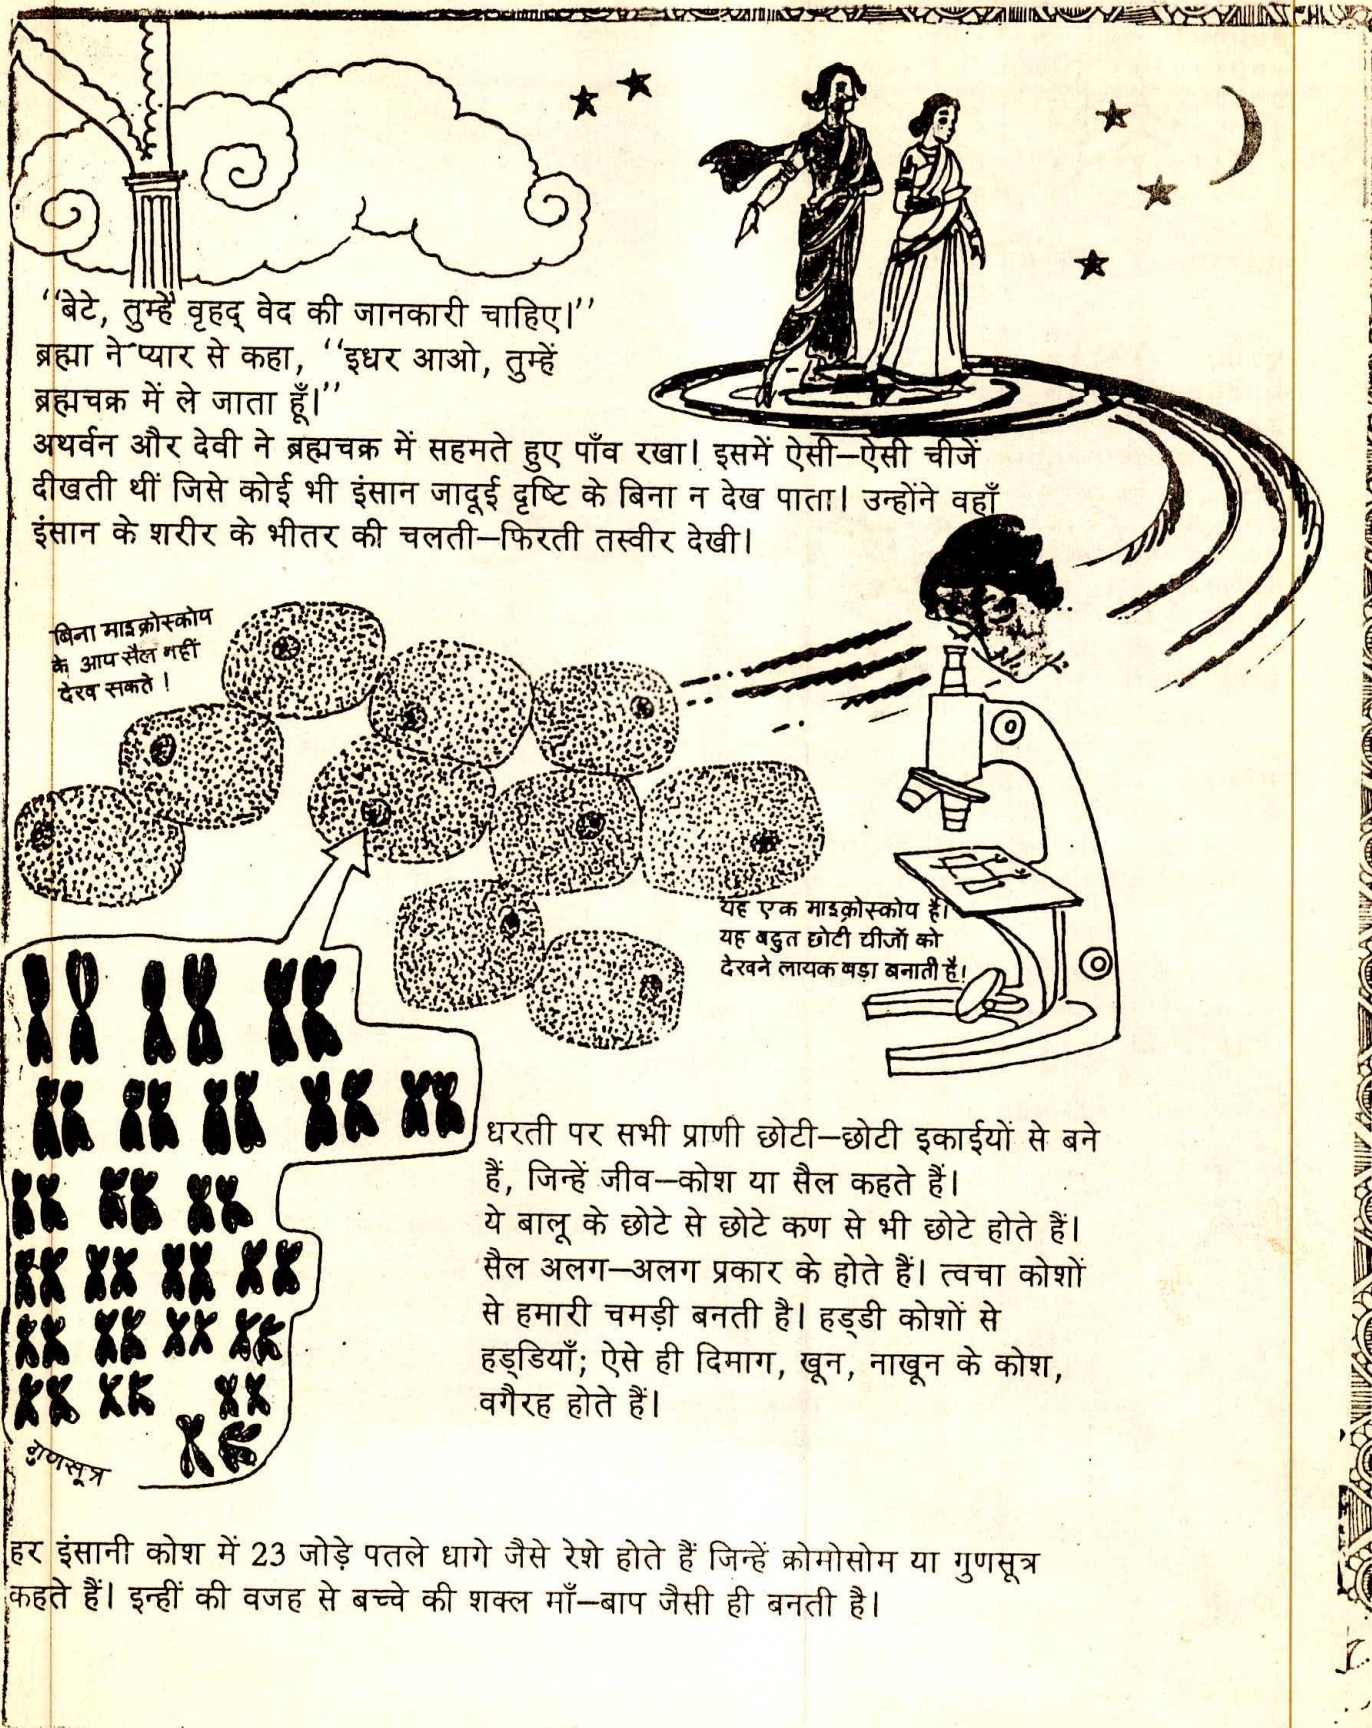 “बेटे, तुम्हें वृहद् वेद की जानकारी चाहिए।”
ब्रह्मा ने प्यार से कहा, “इधर आओ, तुम्हें
ब्रह्मचक्र में ले जाता हूँ।”
अथर्वन और देवी ने ब्रह्मचक्र में सहमते हुए पाँव रखा। इसमें ऐसी–ऐसी चीजें
दीखती थीं जिसे कोई भी इंसान जादूई दृष्टि के बिना न देख पाता। उन्होंने वहाँ
इंसान के शरीर के भीतर की चलती–फिरती तस्वीर देखी।
बिना माइक्रोस्कोप
के आप सैल नहीं
देख सकते!
यह एक माइक्रोस्कोप है।
यह बहुत छोटी चीजों को
देखने लायक बड़ा बनाती है।
धरती पर सभी प्राणी छोटी–छोटी इकाईयों से बने
हैं, जिन्हें जीव–कोश या सैल कहते हैं।
ये बालू के छोटे से छोटे कण से भी छोटे होते हैं।
सैल अलग–अलग प्रकार के होते हैं। त्वचा कोशों
से हमारी चमड़ी बनती है। हड्डी कोशों से
हड्डियाँ; ऐसे ही दिमाग, खून, नाखून के कोश,
वगैरह होते हैं।
गुणसूत्र
हर इंसानी कोश में 23 जोड़े पतले धागे जैसे रेशे होते हैं जिन्हें क्रोमोसोम या गुणसूत्र
कहते हैं। इन्हीं की वजह से बच्चे की शक्ल माँ–बाप जैसी ही बनती है।